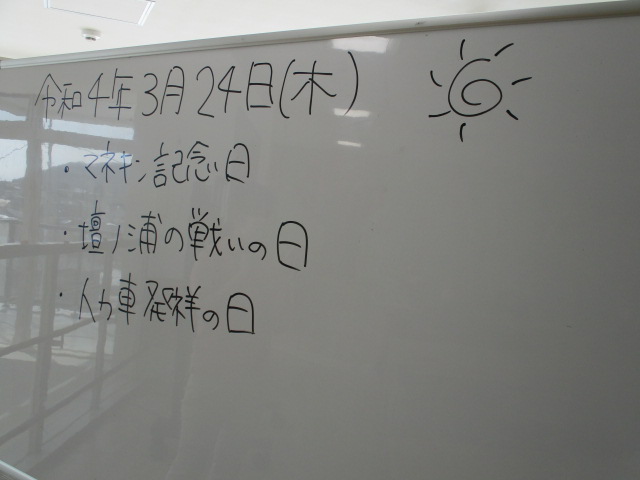 令和4年3月24日(木)
・マネキン記念日
・壇ノ浦の戦いの日
・人力車発祥の日